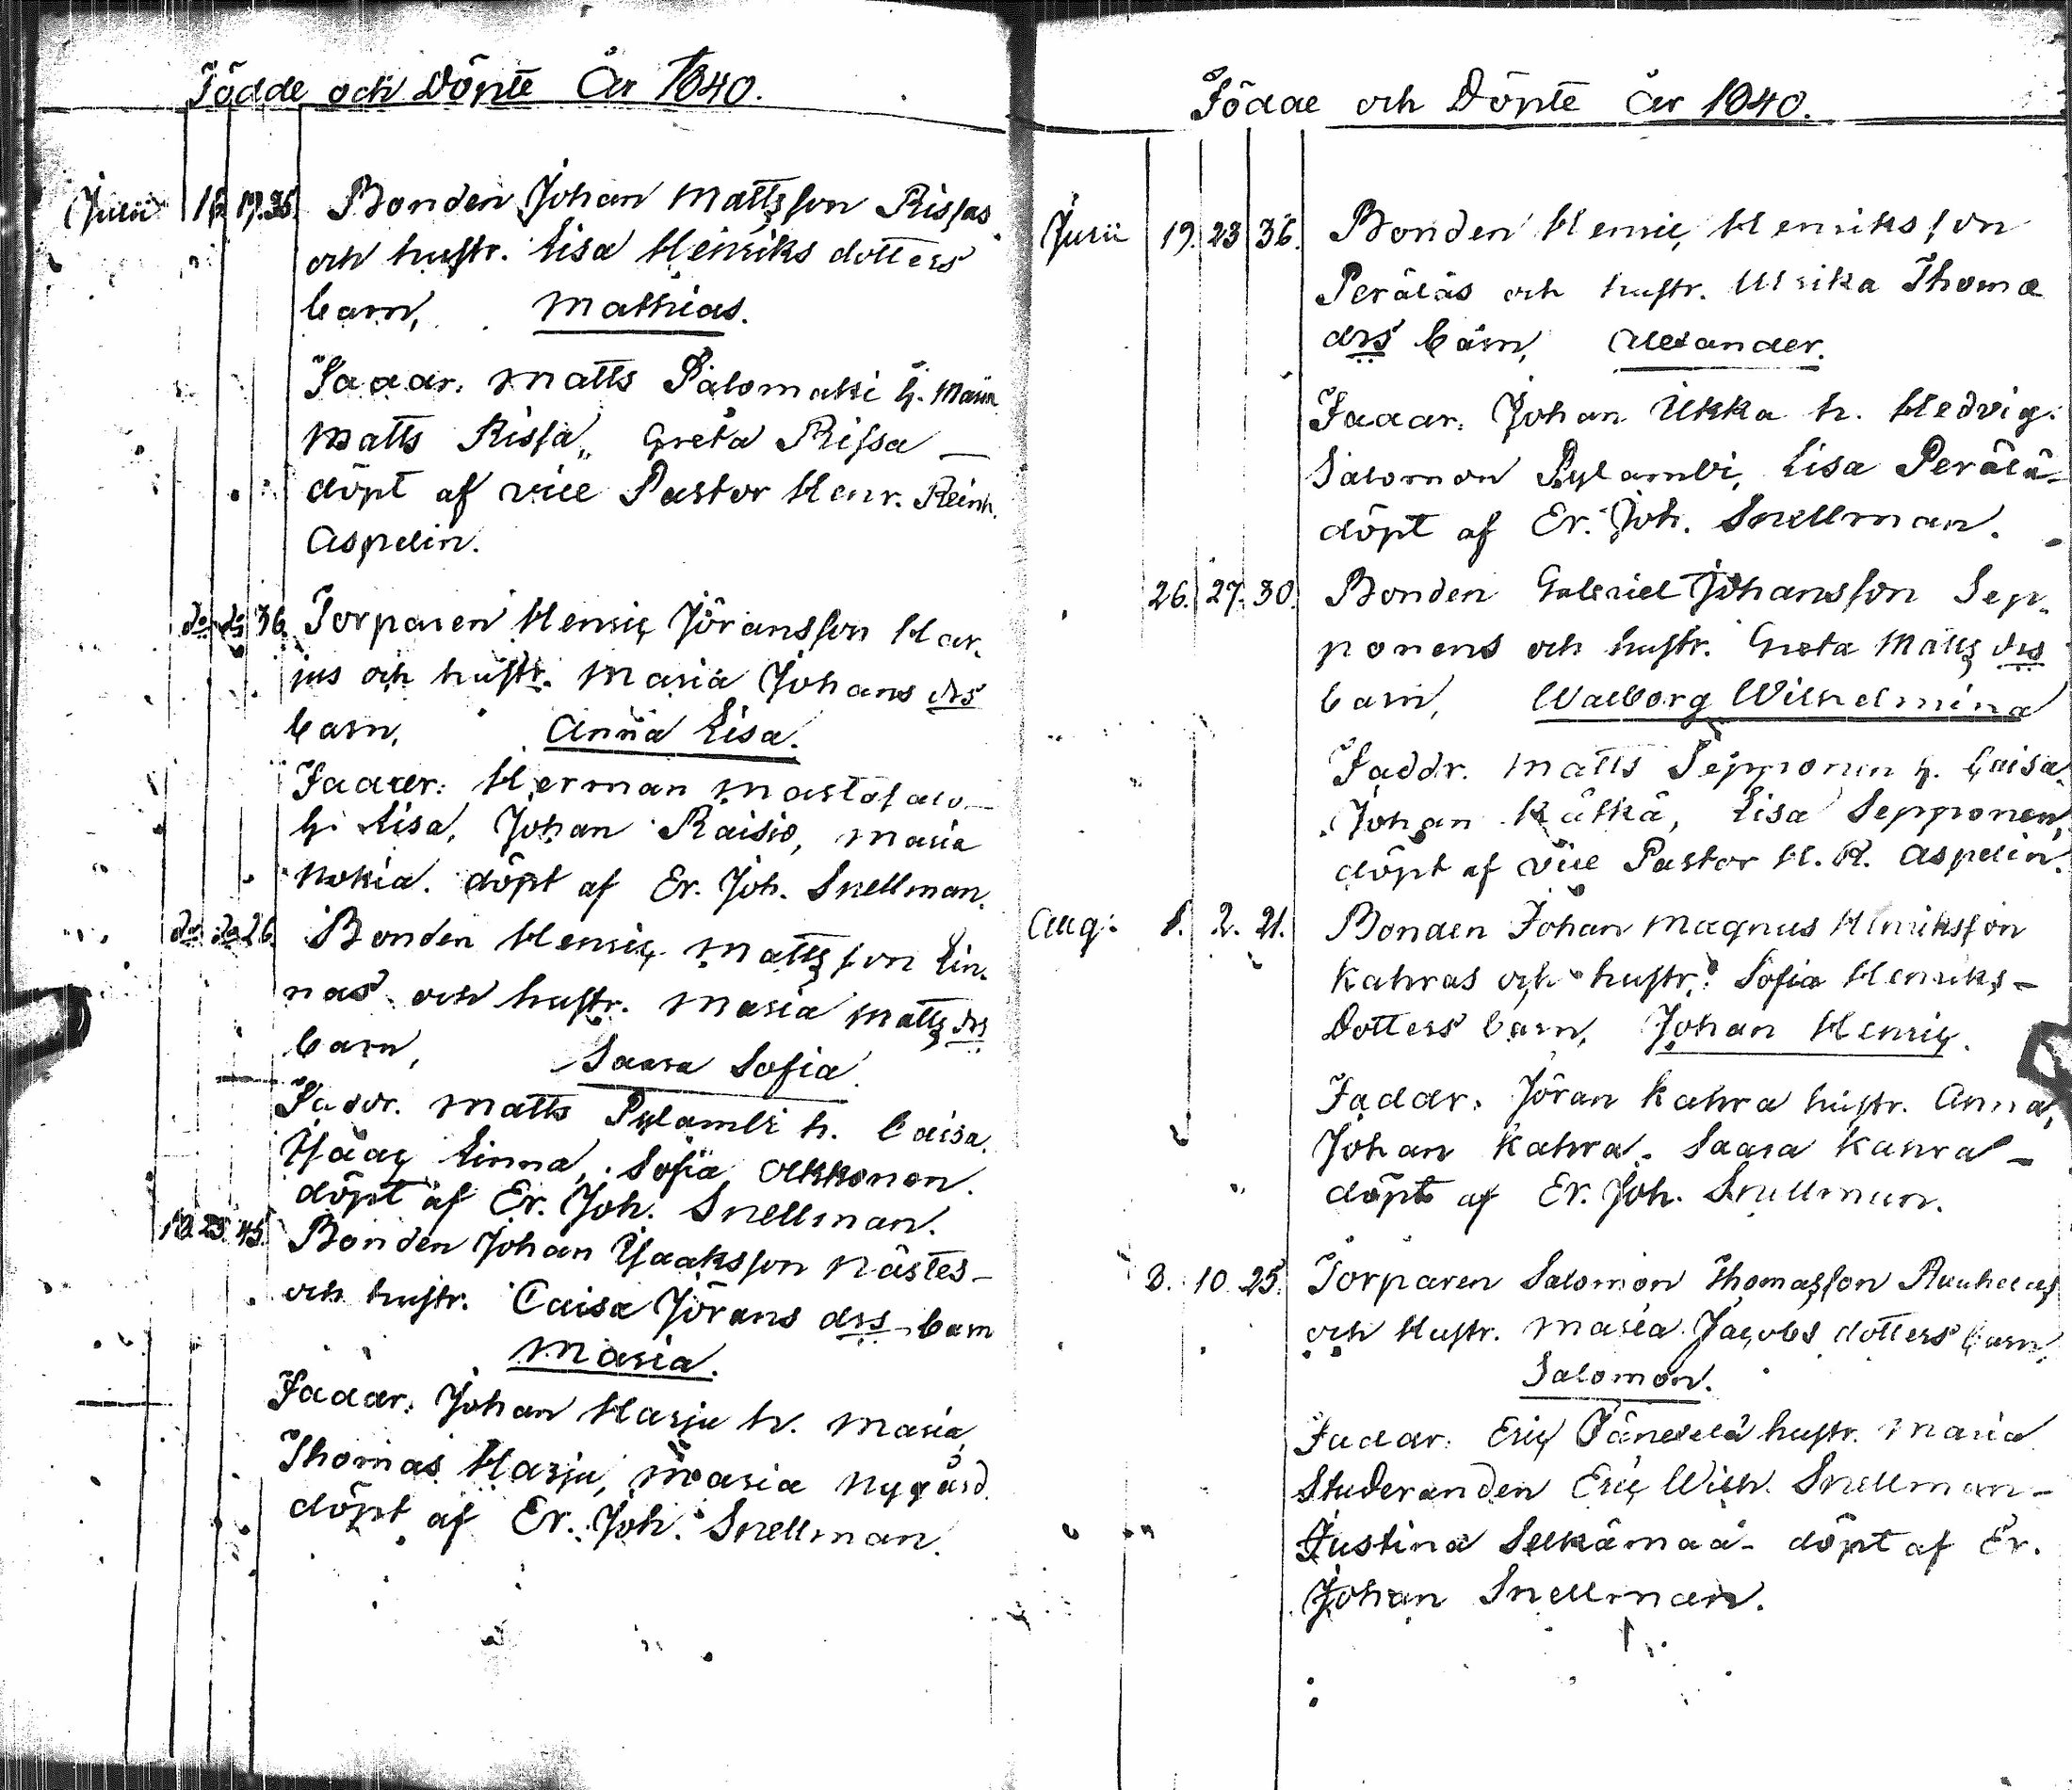 Födde och Döpte År 1840.
Julii 16. 19. 35. Bonden Johan Mattsson Rissas
och hustr. Lisa Henriks dotters
barn, Mathias.
Faddr. Matts Palomaki h. Maria
Matts Rissa, Greta Rissa —
döpt af vice Pastor Henr. Reinh.
Aspelin.
do do 36. Torparen Henric Jöransson Har-
jus och hustr. Maria Johans drs
barn, Anna Lisa.
Fadder: Herman Mastosalo —
h. Lisa, Johan Raisio, Maria
Nokia. döpt af Er. Joh. Snellman.
do do 26. Bonden Henric Mattsson Lin-
nas och hustr. Maria Matts drs
barn, Saara Sofia.
Faddr. Matts Pylambi h. Caisa.
Isaac Linna, Sofia Akkonen.
döpt af Er. Joh. Snellman.
18. 25. 45. Bonden Johan Isaaksson Nästes —
och hustr. Caisa Jörans drs barn
Maria.
Faddr: Johan Harju h. Maria,
Thomas Harju, Maria Nygård.
döpt af Er. Joh. Snellman.
Födde och Döpte År 1840.
Julii 19. 23 36. Bonden Henric Henriksson
Peräläs och hustr. Ulrika Thomæ
drs barn, Alexander.
Faddr. Johan Ukka h. Hedvig.
Salomon Pylambi, Lisa Perälä —
döpt af Er. Joh. Snellman.
26. 27. 30. Bonden Gabriel Johansson Sep-
ponens och hustr. Greta Matts drs
barn, Walborg Wilhelmina
Faddr. Matts Sepponen h. Caisa.
Johan Kälkä, Lisa Sepponen,
döpt af vice Pastor H. R. Aspelin.
Aug: 1. 2. 21. Bonden Johan Magnus Henriksson
Kahras och hustr. Sofia Henriks —
Dotters barn, Johan Henric.
Faddr. Jöran Kahra hustr. Anna,
Johan Kahra. Saara Kahra —
döpt af Er. Joh. Snellman.
8. 10. 25. Torparen Salomon Thomasson
och Hustr. Maria Jacobs dotters barn,
Salomon.
Faddr. Eric hustr. Maria
Studeranden Eric Wilh. Snellman —
Justina Selkämaa — döpt af Er.
Johan Snellman.